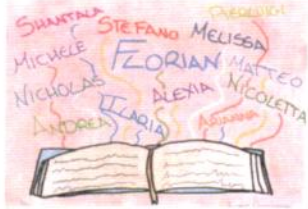 SHANTALA STEFANO PIERLUIGI
MELISSA
MICHELE FLORIAN MATTEO
NICHOLAS ALEXIA NICOLETTA
ANDREA ILARIA ARIANNA